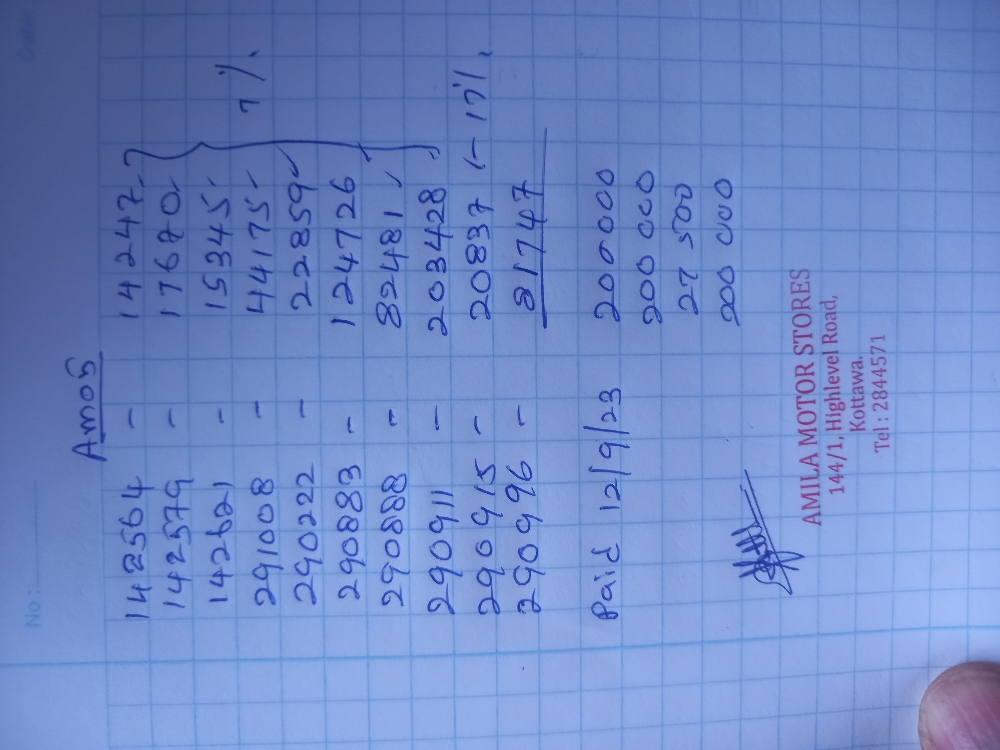 No:
Date:
Amoจ
142564 - 14247
142579 - 17620
142621 - 15345
291008 - 44175
290222 - 22859
290883 - 124726
290888 - 82481
290911 - 203428
290915 - 20837 (- 17%
290996 - 81747
7%
Paid 12/9/23 200 0000
200 000
27 500
200 000
AMILA MOTOR STORES
144/1, Highlevel Road,
Kottawa.
Tel : 2844571